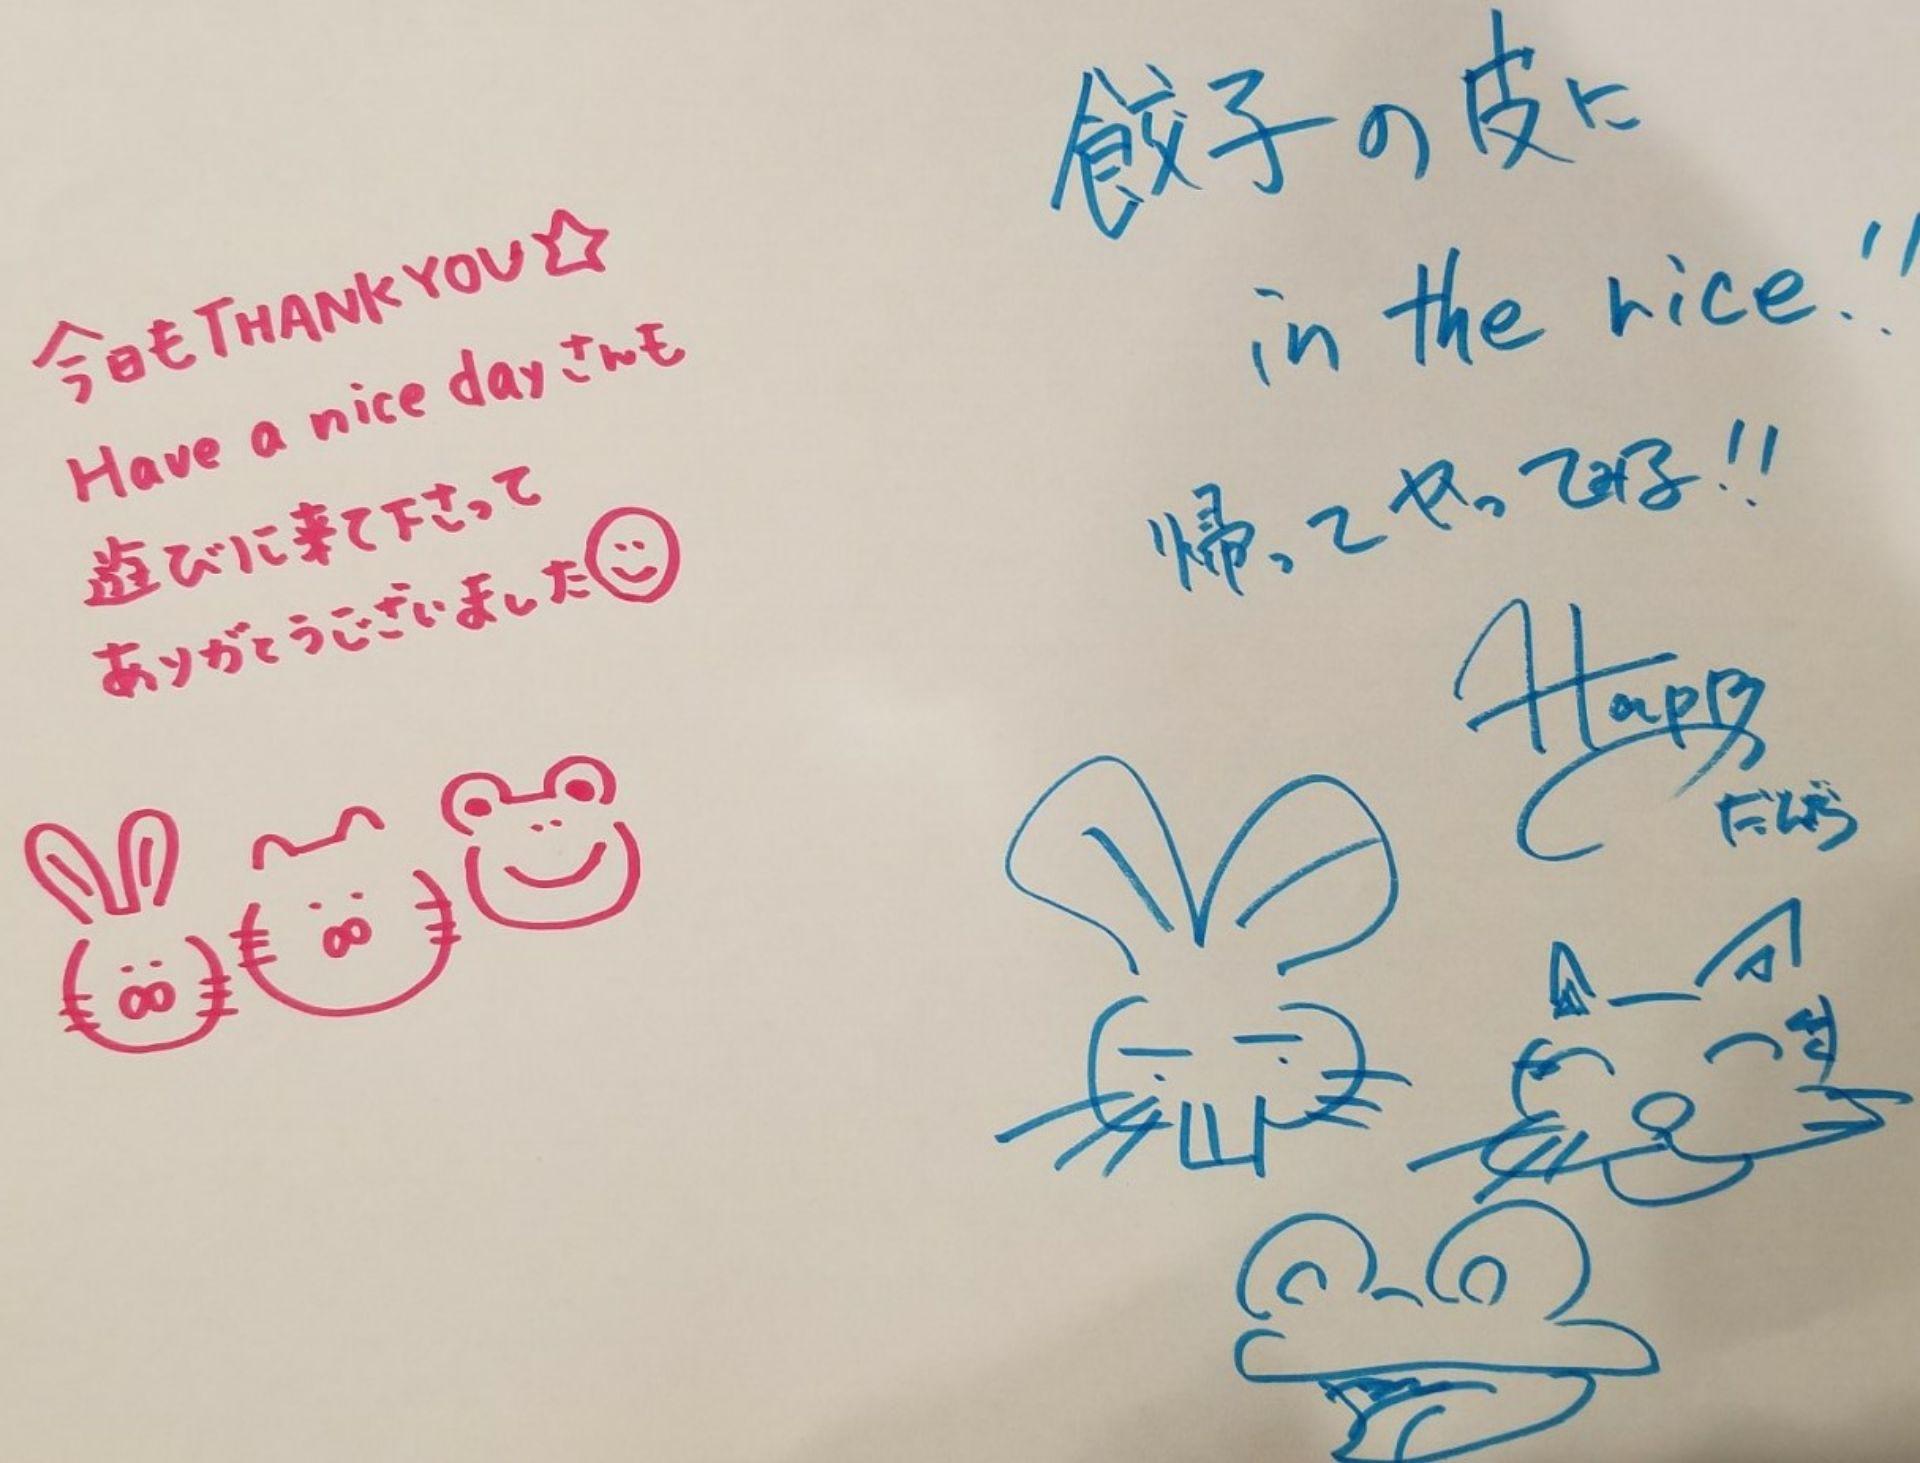 今日もTHANKYOU☆
Have a nice dayさんも
遊びに来て下さって
ありがとうございました
餃子の皮に
in the rice!!
帰ってやってみる!!
Happy